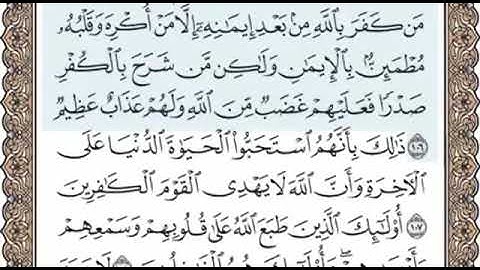 مَن كَفَرَ بِٱللَّهِ مِنۢ بَعْدِ إِيمَٰنِهِۦٓ إِلَّا مَنْ أُكْرِهَ وَقَلْبُهُۥ
مُطْمَئِنٌّۢ بِٱلْإِيمَٰنِ وَلَٰكِن مَّن شَرَحَ بِٱلْكُفْرِ
صَدْرًا فَعَلَيْهِمْ غَضَبٌ مِّنَ ٱللَّهِ وَلَهُمْ عَذَابٌ عَظِيمٌ
١٠٦ ذَٰلِكَ بِأَنَّهُمُ ٱسْتَحَبُّوا۟ ٱلْحَيَوٰةَ ٱلدُّنْيَا عَلَى
ٱلْـَٔاخِرَةِ وَأَنَّ ٱللَّهَ لَا يَهْدِى ٱلْقَوْمَ ٱلْكَٰفِرِينَ
١٠٧ أُو۟لَٰٓئِكَ ٱلَّذِينَ طَبَعَ ٱللَّهُ عَلَىٰ قُلُوبِهِمْ وَسَمْعِهِمْ